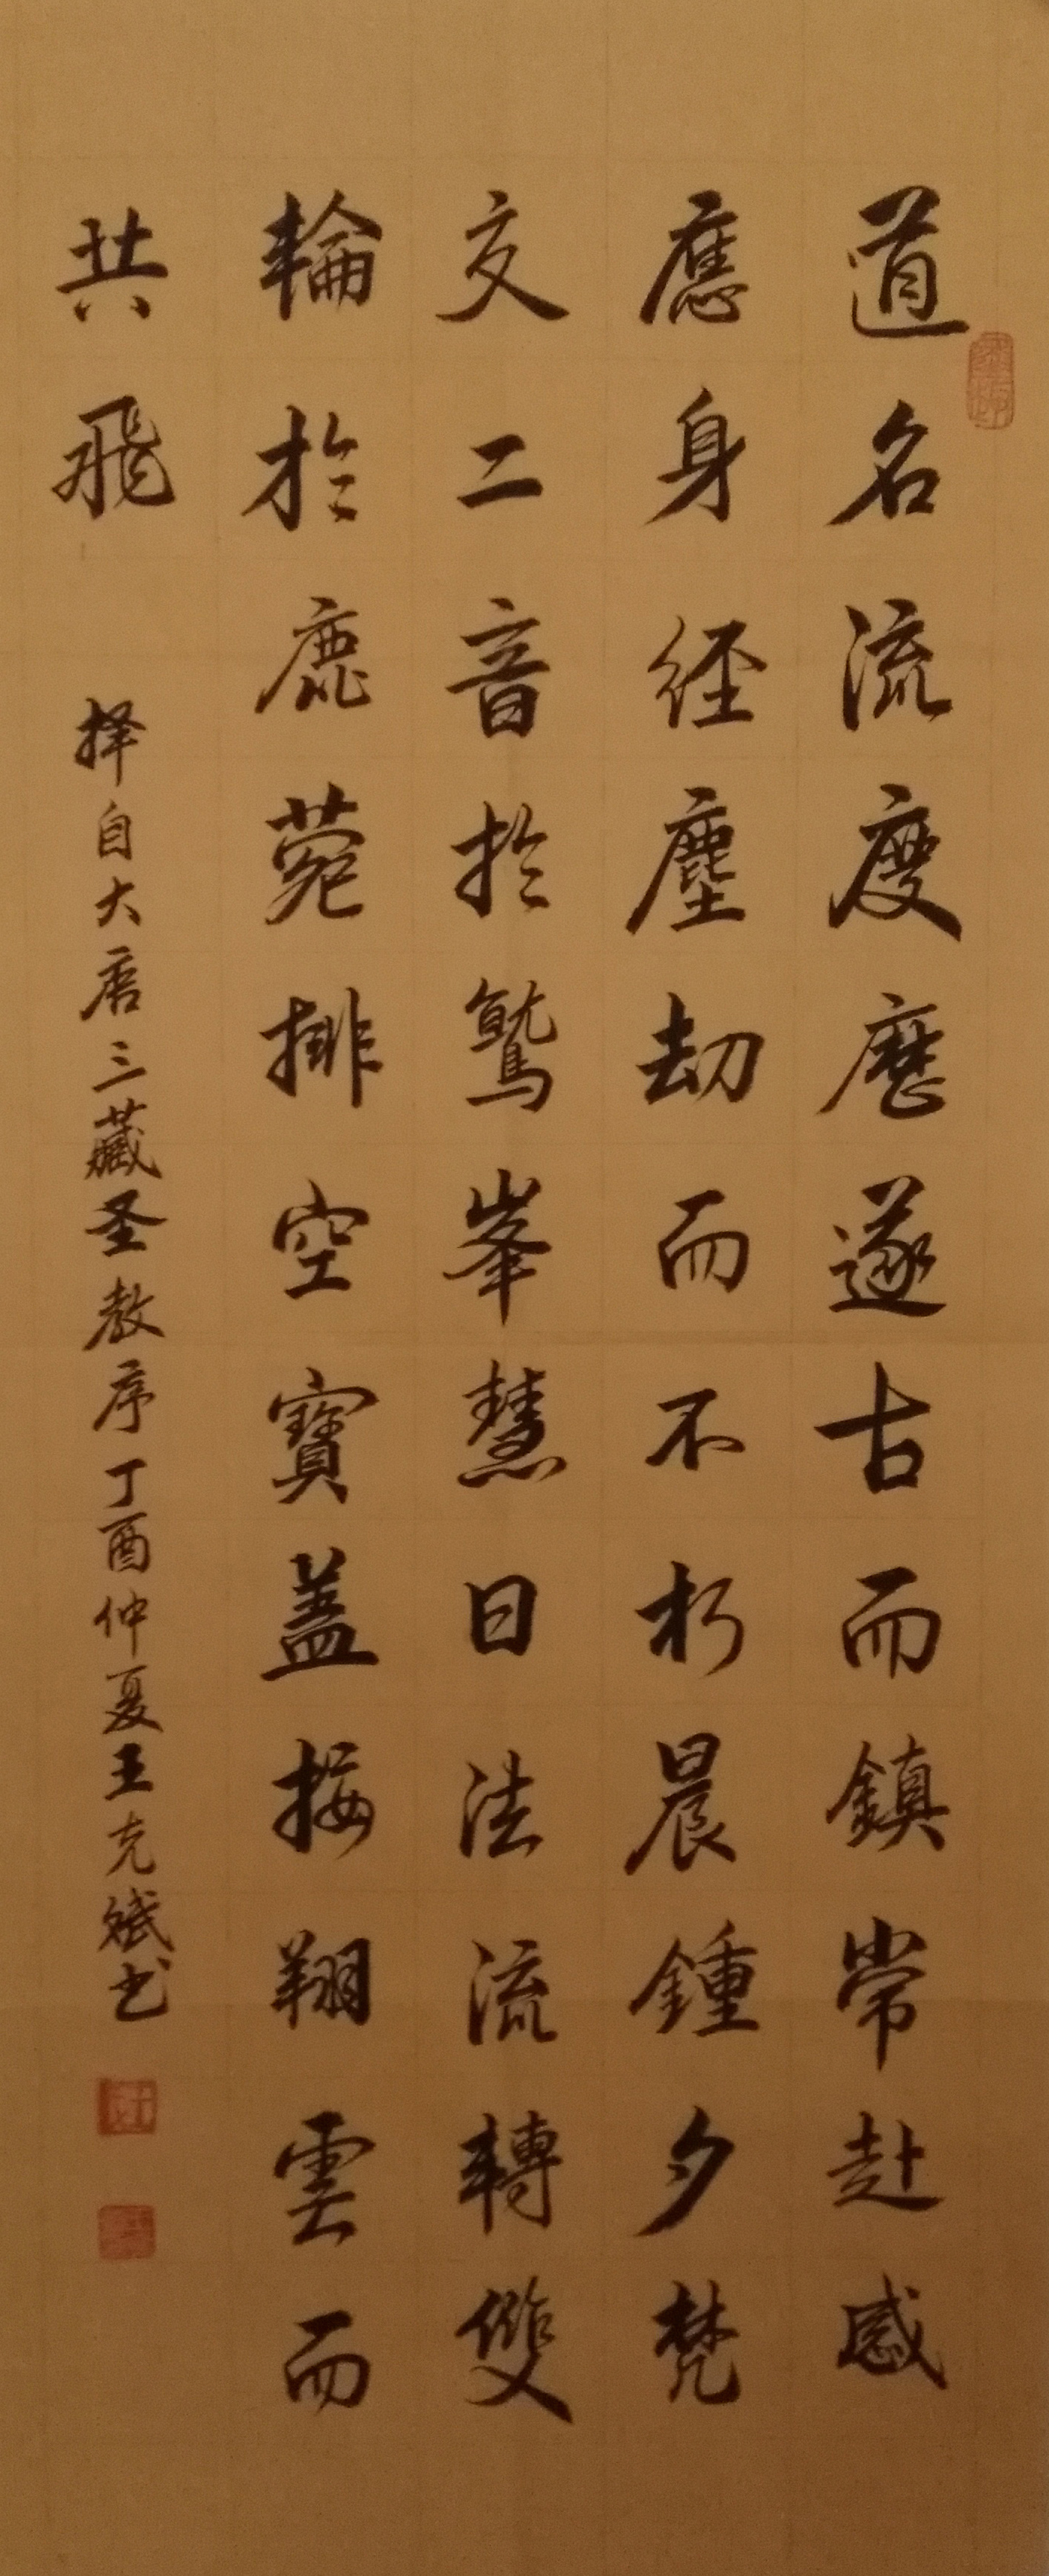 道名流慶歷遂古而鎮常赴感
應身經塵劫而不朽晨鍾夕梵
交二音於鷲峯慧日法流轉雙
輪於鹿菀排空寶蓋接翔雲而
共飛
择自大唐三藏圣教序丁酉仲夏王克斌书